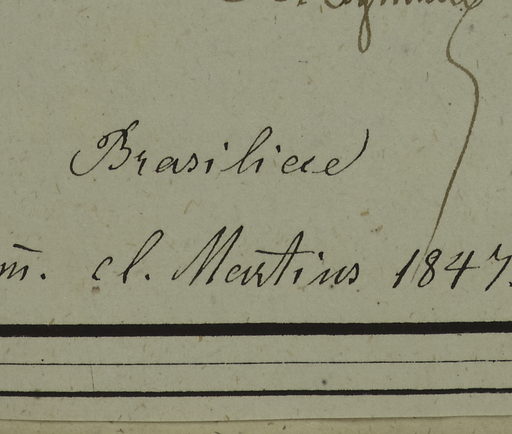 Brasiliae
m̄. cl. Martius 1847.